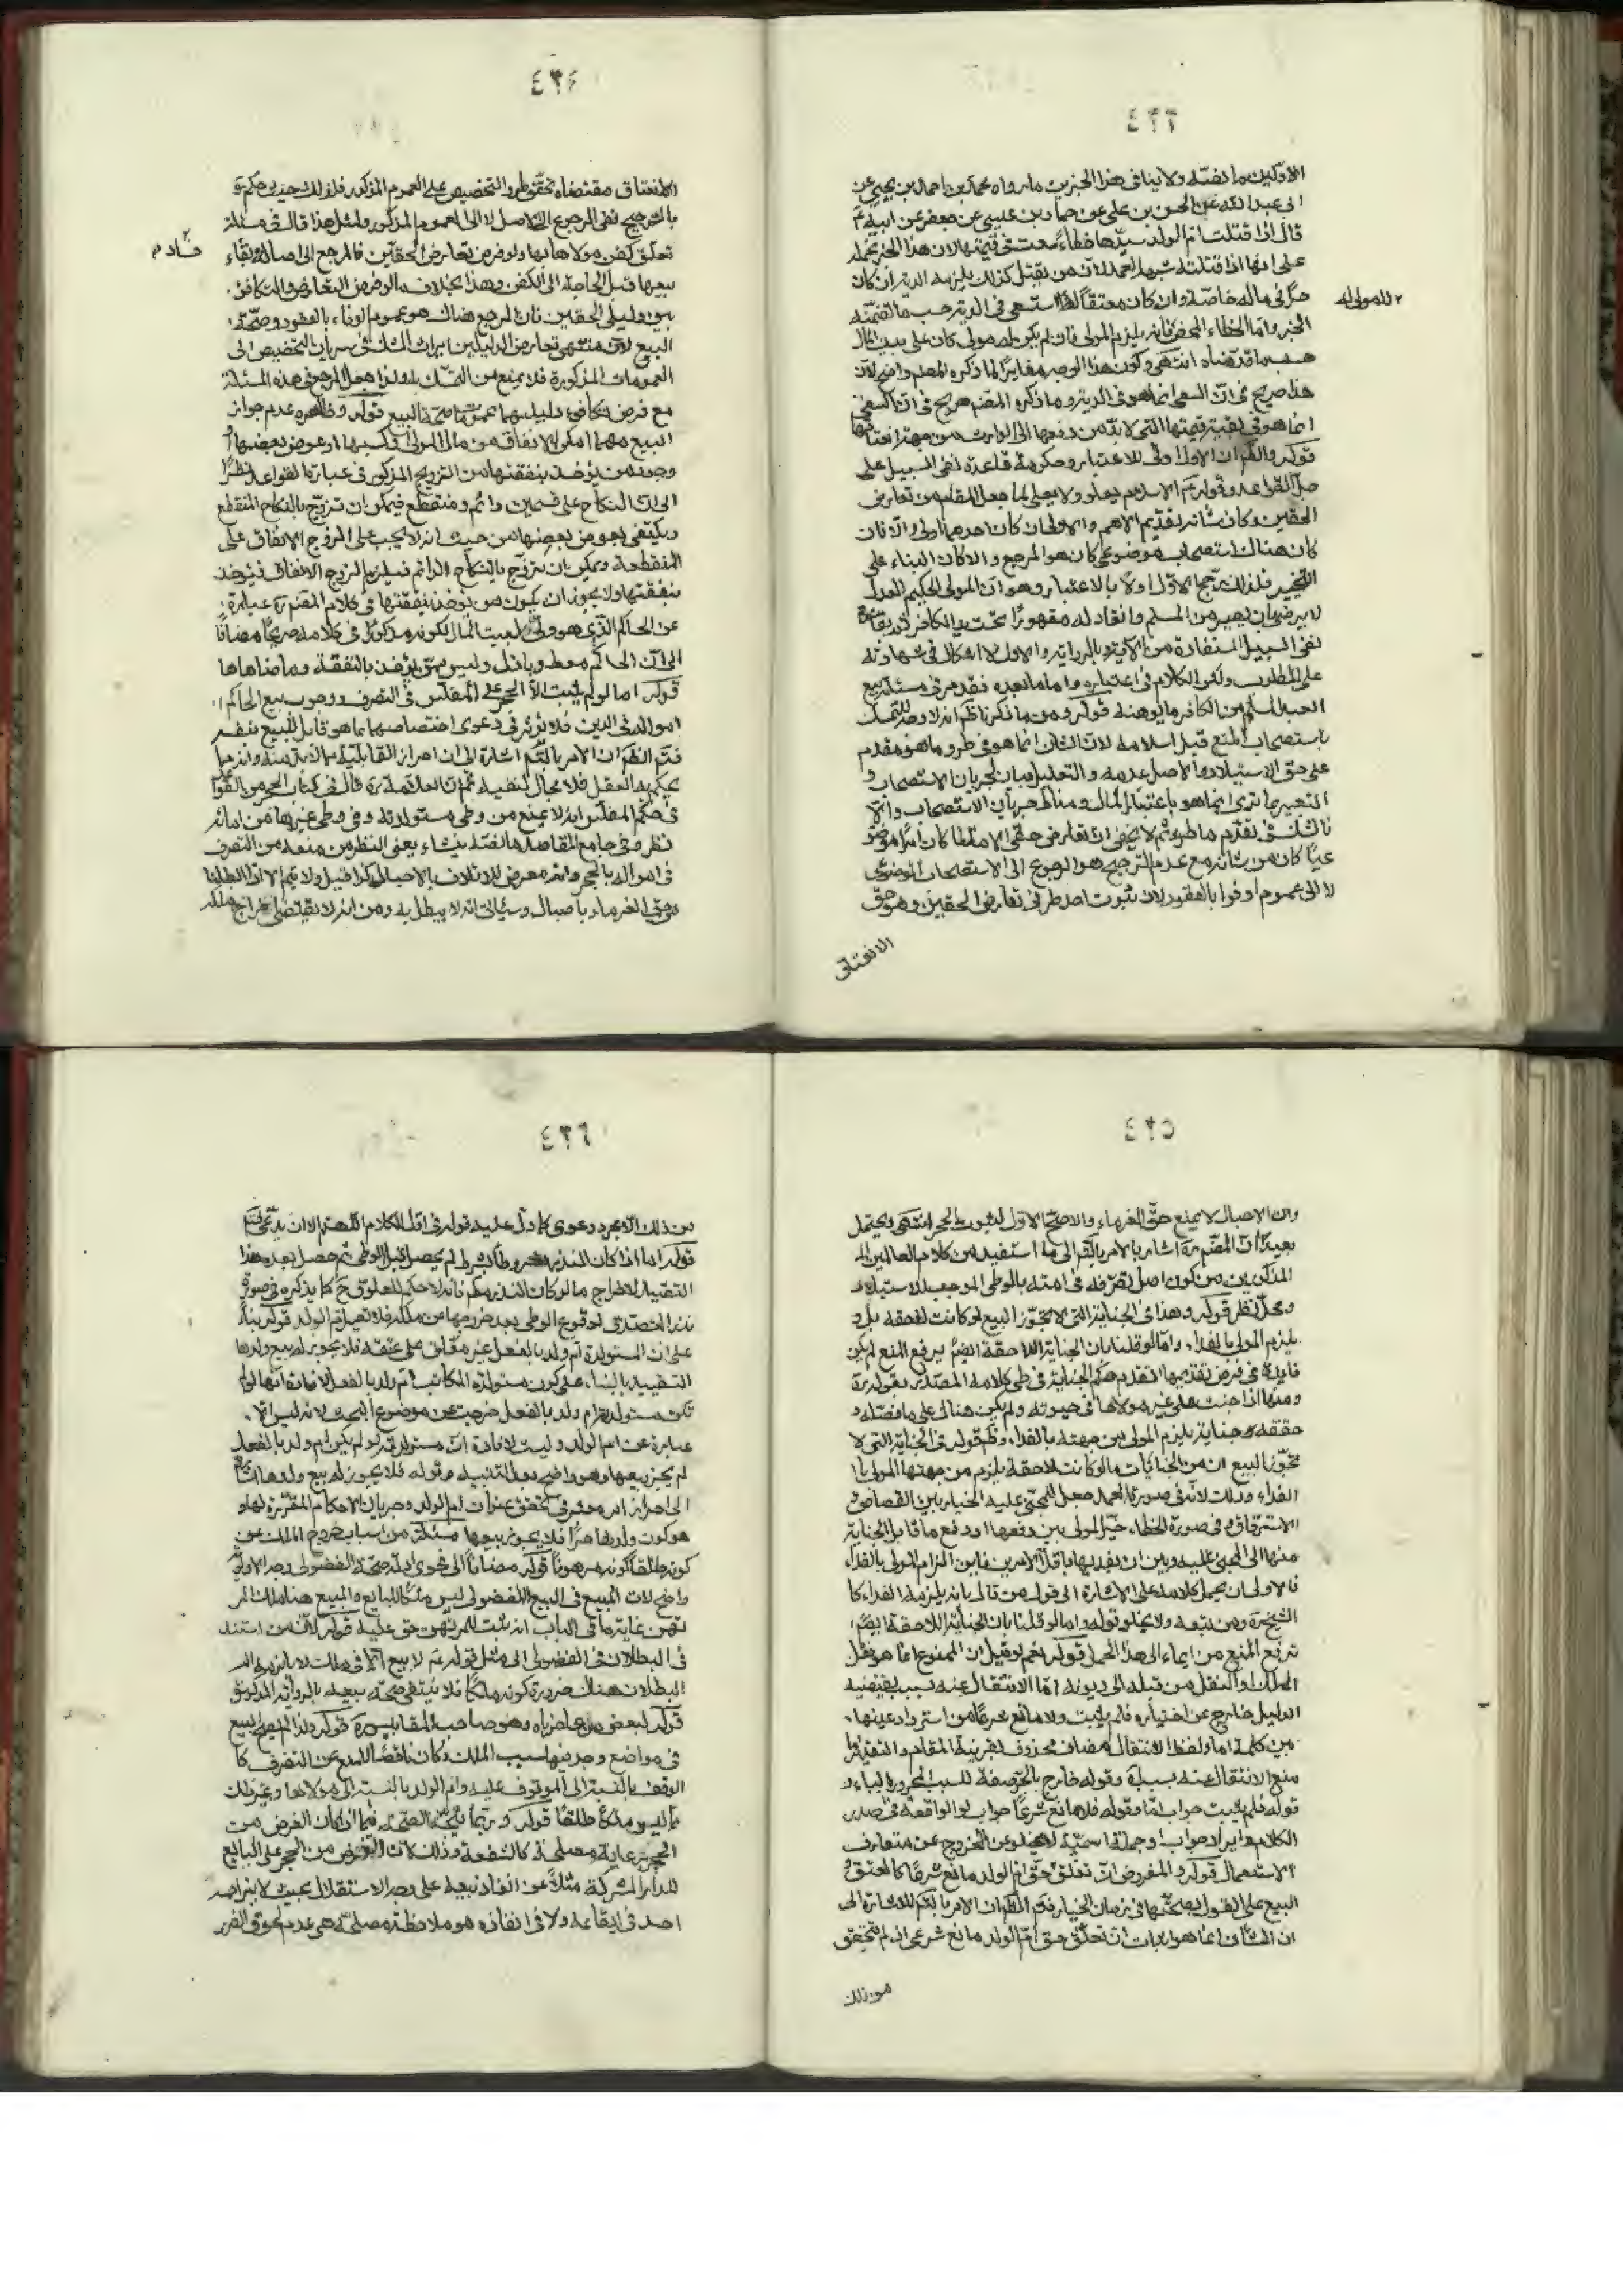 ٤٢٣
الاوّلين ما تضمّنه ولا ينافى هذا الخبرين ما رواه محمّد بن احمد بن يحيى عن
ابى عبد الله عن الحسن بن على عن حماد بن عيسى عن جعفر عن ابيه ع
قال اذا قتلت ام الولد سيّدها خطاء سعت فى قيمتها لان هذا الخبر نحمله
على انها اذا قتلته شبه العمد لان من يقتل كذلك يلزمه الدية ان كان
حرّا فى ماله خاصّة وان كان معتقا لا مولى له استسعى فى الدية حسب ما تضمّنه
الخبر وامّا الخطاء المحض فانه يلزم المولى فان لم يكن له مولى كان على بيت المال
حسبما قدّمناه انتهى وكون هذا الوجه مغايرًا لما ذكره المصنف واضح لان
هذا صريح فى انّ السعى انما هو فى الدية وما ذكره المصنف صريح فى انّ السعى
انما هو فى بقية قيمتها التى لا بدّ من دفعها الى الوارث من جهة انعتاقها
قوله والظم ان الاول اولى للاعتبار وحكومة قاعدة نفى السبيل على
جلّ القواعد وقوله ع الاسلام يعلو ولا يعلى لما جعل المقام من تعارض
الحقين وكان شانه تقديم الاهم والاولى ان كان احدهما اولى والا فان
كان هناك استصحاب موضوعى كان هو المرجع والا كان البناء على
التخيير فلذلك رجّح الاوّل اولا بالاعتبار وهو انّ المولى الحكيم
لا يرضى بان يصير من اسلم وانقاد له مقهورًا تحت يد الكافر
نفى السبيل المستفادة من الاية وبالرواية والاول لا اشكال فى شهادته
على المطلوب ولكن الكلام فى اعتباره واما ما بعده فقد مر فى مسئلة بيع
العبد المسلم من الكافر ما يوهنه قوله ومن ما ذكرنا ظهر انه لا وجه للتمسك
باستصحاب المنع قبل اسلامه لان الشان انما هو فى طرو ما هو مقدم
على حق الاستيلاد والاصل عدمه والتعليل بيان لجريان الاستصحاب و
التعبير بما ترى انما هو باعتبار المال ومناط جريان الاستصحاب والا
فالشك فى تقدّم ما طرء ثم لا يخفى ان تعارض حقى الامة لما كان امرا موضو
عيّا كان من شانه مع عدم الترجيح هو الرجوع الى الاستصحاب الموضوعى
لا الى عموم اوفوا بالعقود لان ثبوت اصل طرفى تعارض الحقين وهو حق
الانعتاق
لا مولى له
٤٢٤
الانعتاق مقتضاه تحقّق طرو التخصيص على العموم المذكور فلذلك حيث حكم
بالترجيح نفى المرجوع الى الاصل لا الى العموم المذكور ولمثل هذا قال فى مسئلة
تعلّق كفن مولاها بها ولو فرض تعارض الحقّين فالمرجع الى اصالة بقاء
بيعها قبل الحاجة الى الكفن وهذا بخلاف ما لو فرض التعارض والتكافؤ
بين دليلى الحقين فان المرجع هناك هو عموم الوفاء بالعقود وصحّة
البيع لان منتهى تعارض الدليلين ايراث الشك فى سريان التخصيص الى
العمومات المذكورة فلا يمنع من التمسّك بها ولذا جعل المرجع فى هذه المسئلة
مع فرض تكافوء دليليهما عموم صحّة البيع قوله وظاهره عدم جواز
البيع مهما امكن الانفاق من مال المولى او كسبها او عوض بعضها
وجود من يؤخذ بنفقتها التزويج المذكور فى عبارة القواعد نظرًا
الى انّ النكاح على قسمين دائم ومنقطع فيمكن ان تزوّج بالنكاح المنقطع
ويكتفى بعوض بعضها من حيث انه لا يجب على الزوج الانفاق على
المنقطعة ويمكن ان تزوّج بالنكاح الدائم فيلزم الزوج الانفاق فيؤخذ
بنفقتها ولا يجوز ان يكون من يؤخذ بنفقتها فى كلام المصنف ره عبارة
عن الحاكم الذى هو ولى لبيت المال لكونه مذكورًا فى كلامه صريحًا مضافًا
الى ان الحاكم معط وباذل وليس ممن يؤخذ بالنفقة وما ضاهاها
قوله اما لو لم يثبت الا الحجر على المفلّس فى التصرف ووجوب بيع الحاكم
امواله فى الدين فلا يؤثر فى دعوى اختصاصهما بما هو قابل للبيع فى نفسه
فتم الظم ان الامر بالتّم اشارة الى ان احراز القابلية مما لا بد منه وانه مما
يحكم به العقل فلا مجال لنفيه ثم ان العلامة ره قال فى كتاب الحجر من القواعد
فى حكم المفلّس انه لا يمنع من وطى مستولدته وفى وطى غيرها من امائه
نظر وفى جامع المقاصد ما لفظه ينشاء يعنى النظر من منعه من التصرف
فى امواله بالحجر وانه معرض للاتلاف بالاحبال كذا قيل ولا يتم الا اذا ابطلنا
حق الغرماء باحبال وسيأتى انه لا يبطل به ومن انه لا يقتضى اخراج ملكه
٤٢٥
وان الاحبال لا يمنع حقّ الغرماء والاصحّ الاوّل لثبوت الحجر انتهى ويحتمل
بعيدًا انّ المصنف ره اشار بالامر بالتّم الى ما استفيد من كلام العالمين
المذكورين من كون اصل تصرّفه فى امته بالوطى الموجب للاستيلاد
ومحلّ نظر قوله وهذا فى الجناية التى لا تجوّز البيع لو كانت لاحقة بل
يلزم المولى بالفداء وامّا لو قلنا بان الجناية اللاحقة ايضم ترفع المنع لم يكن
فايدة فى فرض تقديمها اتقدم حكم الجناية فى طى كلامه المصدّر بقوله ره
ومنها اذا جنت على غير مولاها فى حيوته ولم يكن هنالك على ما فصّله و
حققه جناية يلزم المولى من جهته بالفداء وظم قوله فى الجناية التى لا
تجوّز البيع ان من الجنايات ما لو كانت لاحقة يلزم من جهتها المولى با
الفداء وذلك لانّه فى صورة العمد جعل للمجنى عليه الخيار بين القصاص و
الاسترقاق وفى صورة الخطاء خيّر المولى بين دفعها او دفع ما قابل الجناية
منها الى المجنى عليه وبين ان يفديها باقلّ الامرين فاين الزام المولى بالفداء
فالاولى ان يحمل كلامه على الاشارة الى قول من قال بانه يلزمه الفداء كا
الشيخ ره ومن تبعه ولا يخلو قوله واما لو قلنا بان الجناية اللاحقة ايضم
ترفع المنع من ايماء الى هذا الحمل قوله نعم لو قيل ان الممنوع انما هو نقل
الملك او النقل من قبله الى ديونه امّا الانتقال عنه بسبب يقتضيه
الدليل خارج عن اختياره فلم يثبت ولا مانع شرعًا من استرداد عينها
بين كلمة اما ولفظ الانتقال مضاف محذوف لقرينة المقام والتقدير
منع الانتقال عنه بسبب وقوله خارج بالجرّ صفة للسبب المجرور بالباء و
قوله فلم يثبت جواب امّا وقوله فلا مانع شرعًا جواب لو الواقعة فى صدر
الكلام وايراد جوابها جملة اسميّة لا يخلو عن الخروج عن متعارف
الاستعمال قوله والمفروض انّ تعلّق حقّ امّ الولد مانع شرعًا كالعتق و
البيع على القول بصحّتها فى زمان الخيار فتم الظم ان الامر بالتّم للاشارة الى
ان الشان انما هو اثبات ان تعلّق حق امّ الولد مانع شرعى اذ لم يتحقق
من ذلك
٤٢٦
من ذلك الا مجرد دعوى كما دلّ عليه قوله فى اوّل الكلام اللّهم الا ان يدّعى فتم
قوله اما اذا كان النذر مشروطا بشرط لم يحصل قبل الوطى ثم حصل بعده هذا
التقييد لاخراج ما لو كان النذر مطم فانه لا حكم للعلوق ح كما يذكره فى صورة
نذر التصدق لوقوع الوطى بعد خروجها عن ملكه فلا تصير ام الولد قوله بناءً
على ان المستولدة ام ولد بالفعل غير معلّق على عتقه فلا يجوز له بيع ولدها
التقييد بالبناء على كون مستولدة المكاتب ام ولد بالفعل لافادة انها لو لم
تكن مستولدته ام ولد بالفعل خرجت عن موضوع البحث لانه ليس الا
عبارة عن ام الولد وليست لافادة انّ مستولدته لو لم يكن ام ولد بالفعل
لم يجز بيعها وهو واضح بعد التنبيه وقوله فلا يجوز له بيع ولدها اشارة
الى احراز امر معتبر فى تحقق عنوان ام الولد وجريان الاحكام المقررة لها و
هو كون ولدها حرّا فلا يجوز بيعها مسئلة من اسباب خروج الملك عن
كونه طلقا كونه مرهونا قوله مضافاً الى فحوى ادلّة صحّة الفضولى وجه الاولويّة
واضح لان المبيع فى البيع الفضولى ليس ملكا للبايع والمبيع هنا ملك الرا
هن غاية ما فى الباب انه يثبت للمرتهن حق عليه قوله لان من استند
فى البطلان فى الفضولى الى مثل قوله ع لا بيع الا فى ملك لا يلزمه ال
البطلان هناك ضرورة كونه ملكًا فلا ينتفى صحّة بيعه بالرواية المذكورة
قوله لبعض من عاصرناه وهو صاحب المقابيس ره قوله ولذا لم يصح البيع
فى مواضع وجد فيها سبب الملك وكان ناقصًا للمنع عن التصرف كا
الوقف بالنسبة الى الموقوف عليه وام الولد بالنسبة الى مولاها وغير ذلك
مما ليس ملكًا طلقًا قوله وربّما يتّجه الصحّة فيما اذا كان الغرض من
الحجر رعاية مصلحة كالشفعة وذلك لان الغرض من الحجر على البايع
للدار المشتركة مثلًا عن انفاذ بيعه على وجه الاستقلال بحيث لا يزاحمه
احد فى ايقاعه ولا فى انفاذه هو ملاحظة مصلحة هى عدم لحوق الضرر